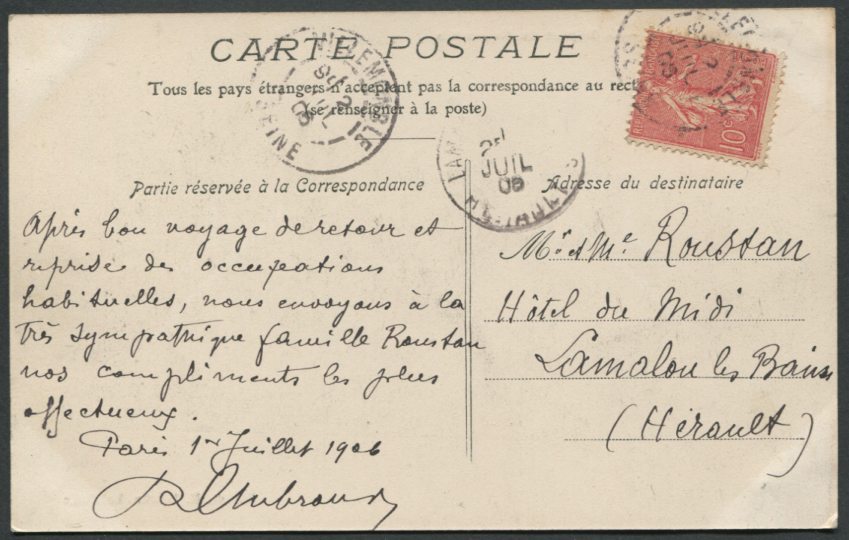 CARTE POSTALE
Tous les pays étrangers n'acceptent pas la correspondance au
(se renseigner à la poste)
SEINE
JUIL
10
LAM
JUIL
Partie réservée à la Correspondance
Adresse du destinataire
Après bon voyage de retour et
reprise des occupations
habituelles, nous envoyons à la
très sympathique famille Roustan
nos compliments les plus
affectueux.
Paris 1er Juillet 1906
Mr et Me Roustan
Hôtel du Midi
Lamalou les Bains
(Hérault)